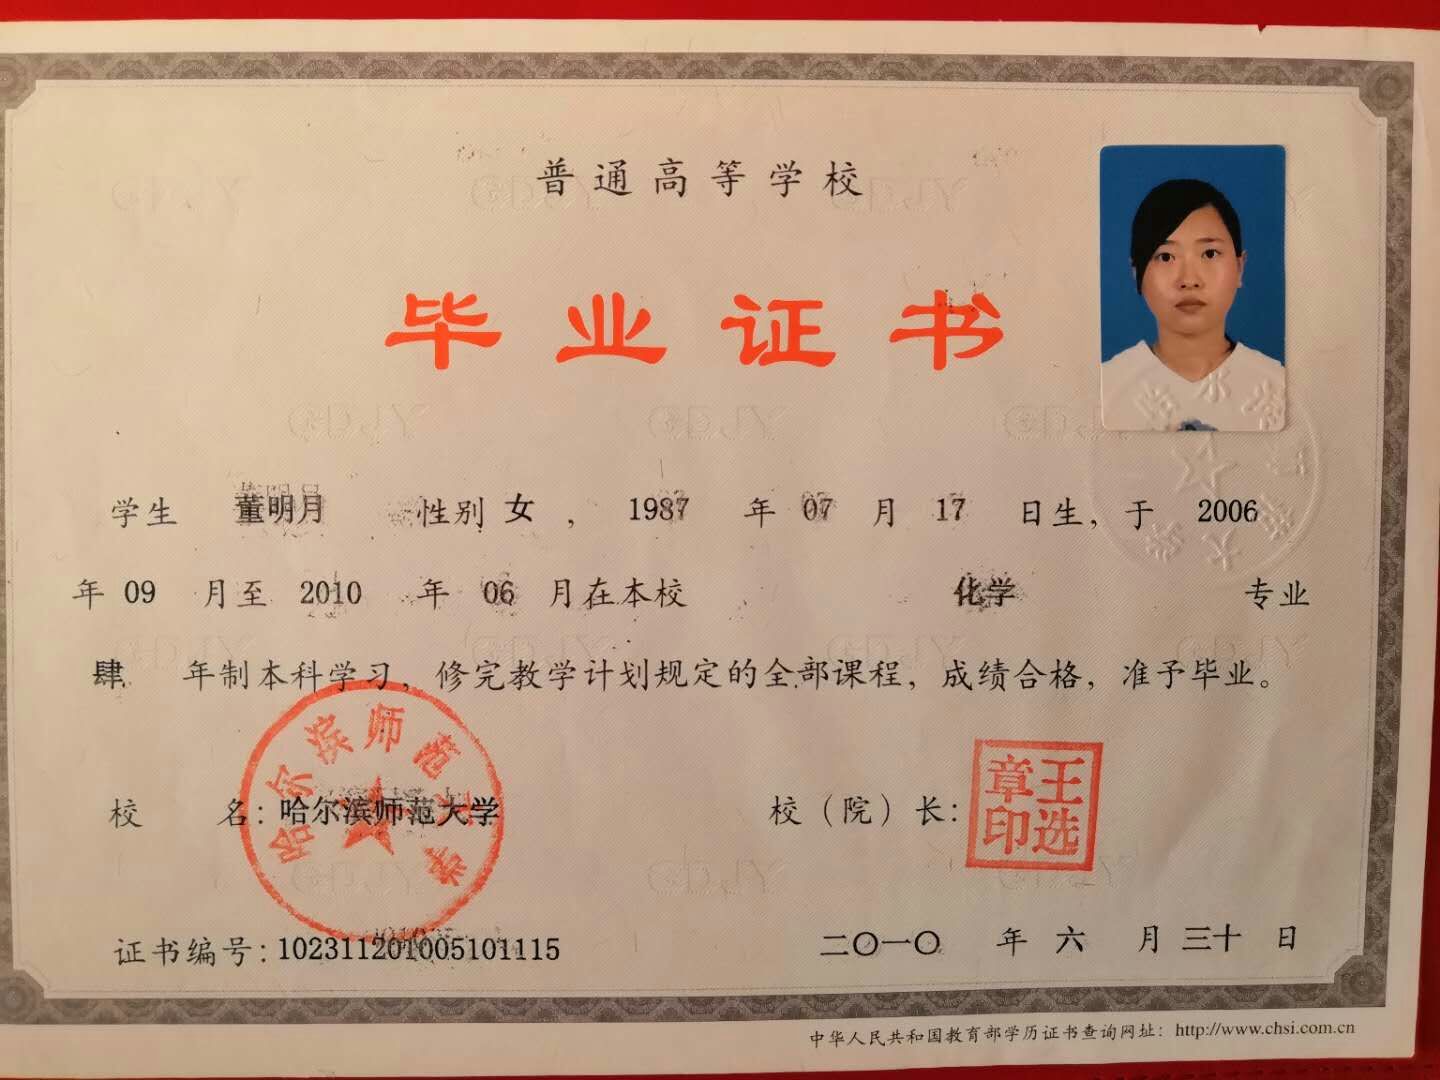 普通高等学校
毕业证书
学生 董明月 性别 女 ， 1987 年 07 月 17 日生，于 2006
年 09 月至 2010 年 06 月在本校 化学 专业
肆 年制本科学习，修完教学计划规定的全部课程，成绩合格，准予毕业。
哈尔滨师范大学
校 名：哈尔滨师范大学 校（院）长：
王选章印
证书编号：102311201005101115 二〇一〇 年 六 月 三十 日
中华人民共和国教育部学历证书查询网址：http://www.chsi.com.cn